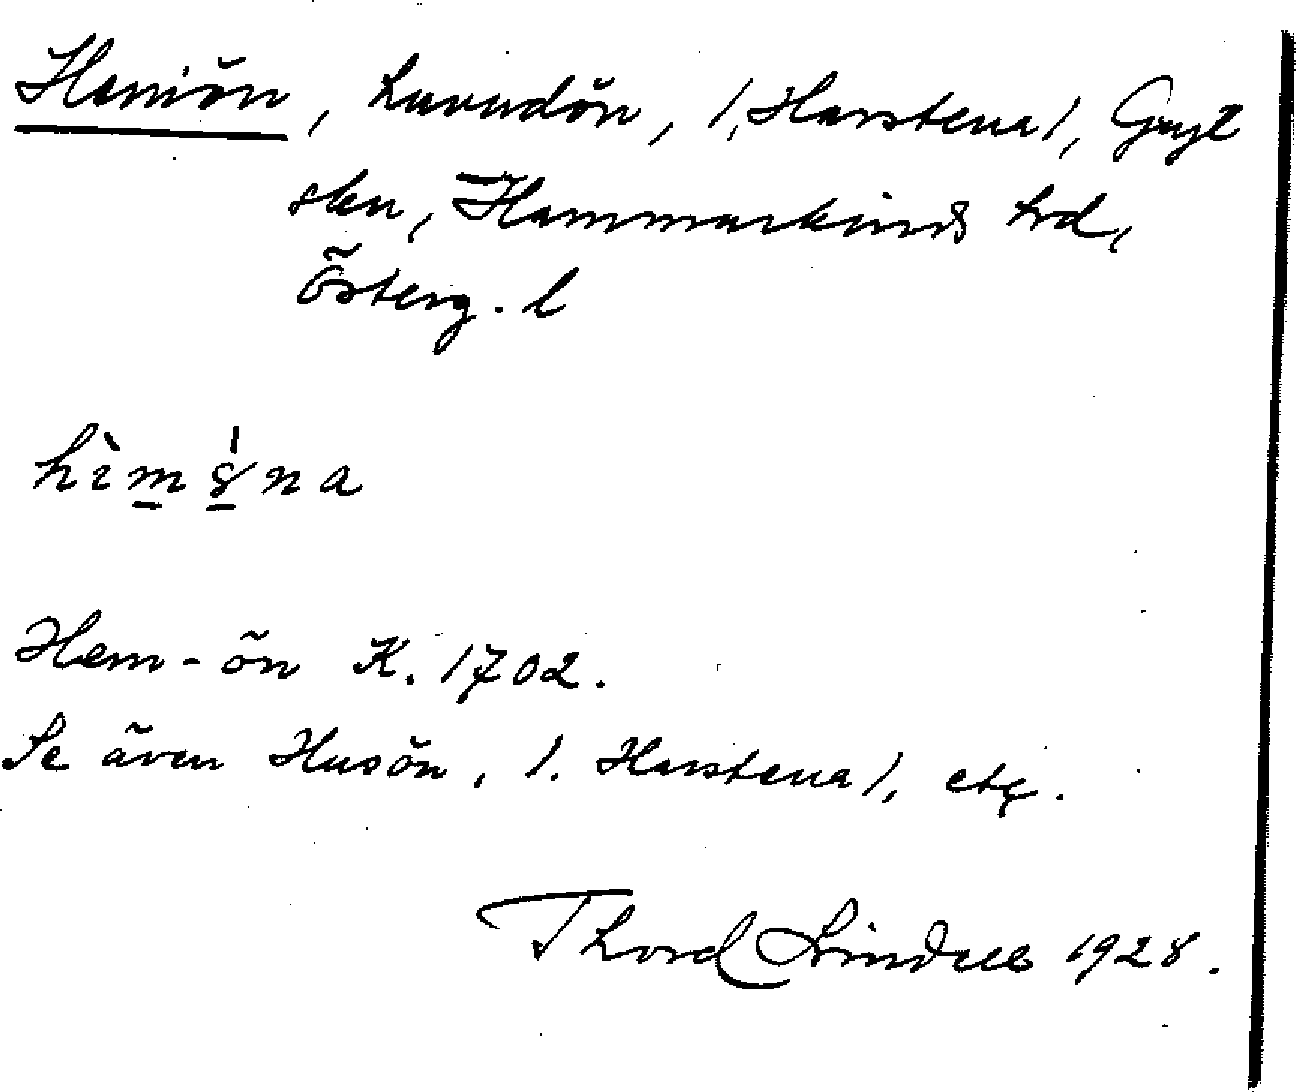 Hemön, huvudön, /, Harstena/, Gryt
skn, Hammarkinds hd,
Österg. l
Hem-ön K. 1702.
Se även Husön, /. Harstena/, etc.
Thord Lindell 1928.